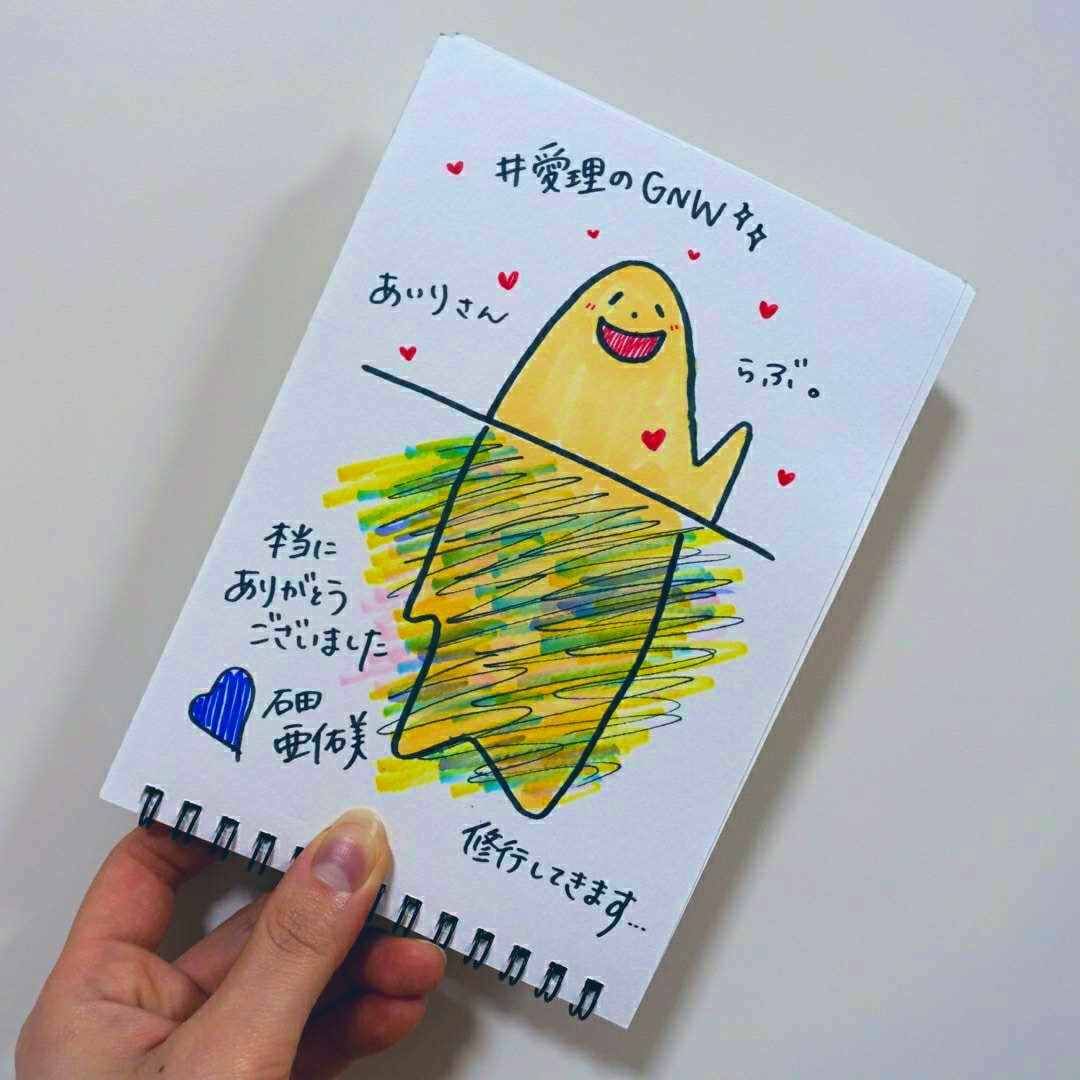 #愛理のGNW
あいりさん
らぶ。
本当に
ありがとう
ございました
石田
亜佑美
修行してきます…